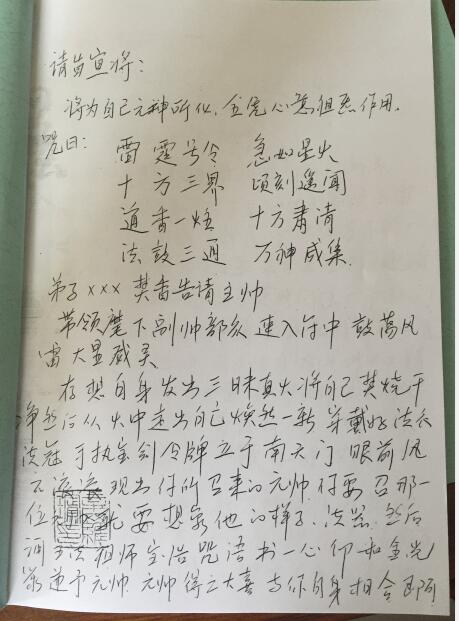 请旨宣将：
将为自己元神所化，全凭心意相感作用。
咒曰：雷霆号令 急如星火
十方三界 顷刻遥闻
道香一炷 十方肃清
法鼓三通 万神咸集
弟子xxx 焚香告请主帅
带领麾下副帅部众 速入符中 鼓荡风
雷 大显威灵
存想自身发出三昧真火将自己焚烧干
净然后从火中走出自己焕然一新 穿戴好法衣
法冠 手执宝剑令牌立于南天门 眼前风
雷 现出符所召来的元帅 符要召那一
位 就要想象他的样子、法器 然后
法祖师宝诰咒语书一心 金光
篆递予元帅 元帅得之大喜 与你自身相合 即